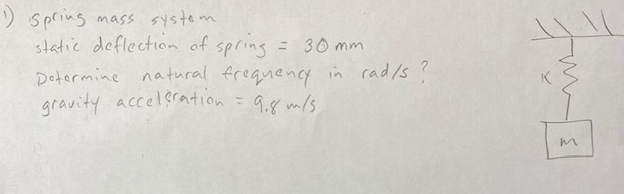 1) Spring mass system
static deflection of spring = 30 mm
Determine natural frequency in rad/s ?
gravity acceleration = 9.8 m/s
K
m